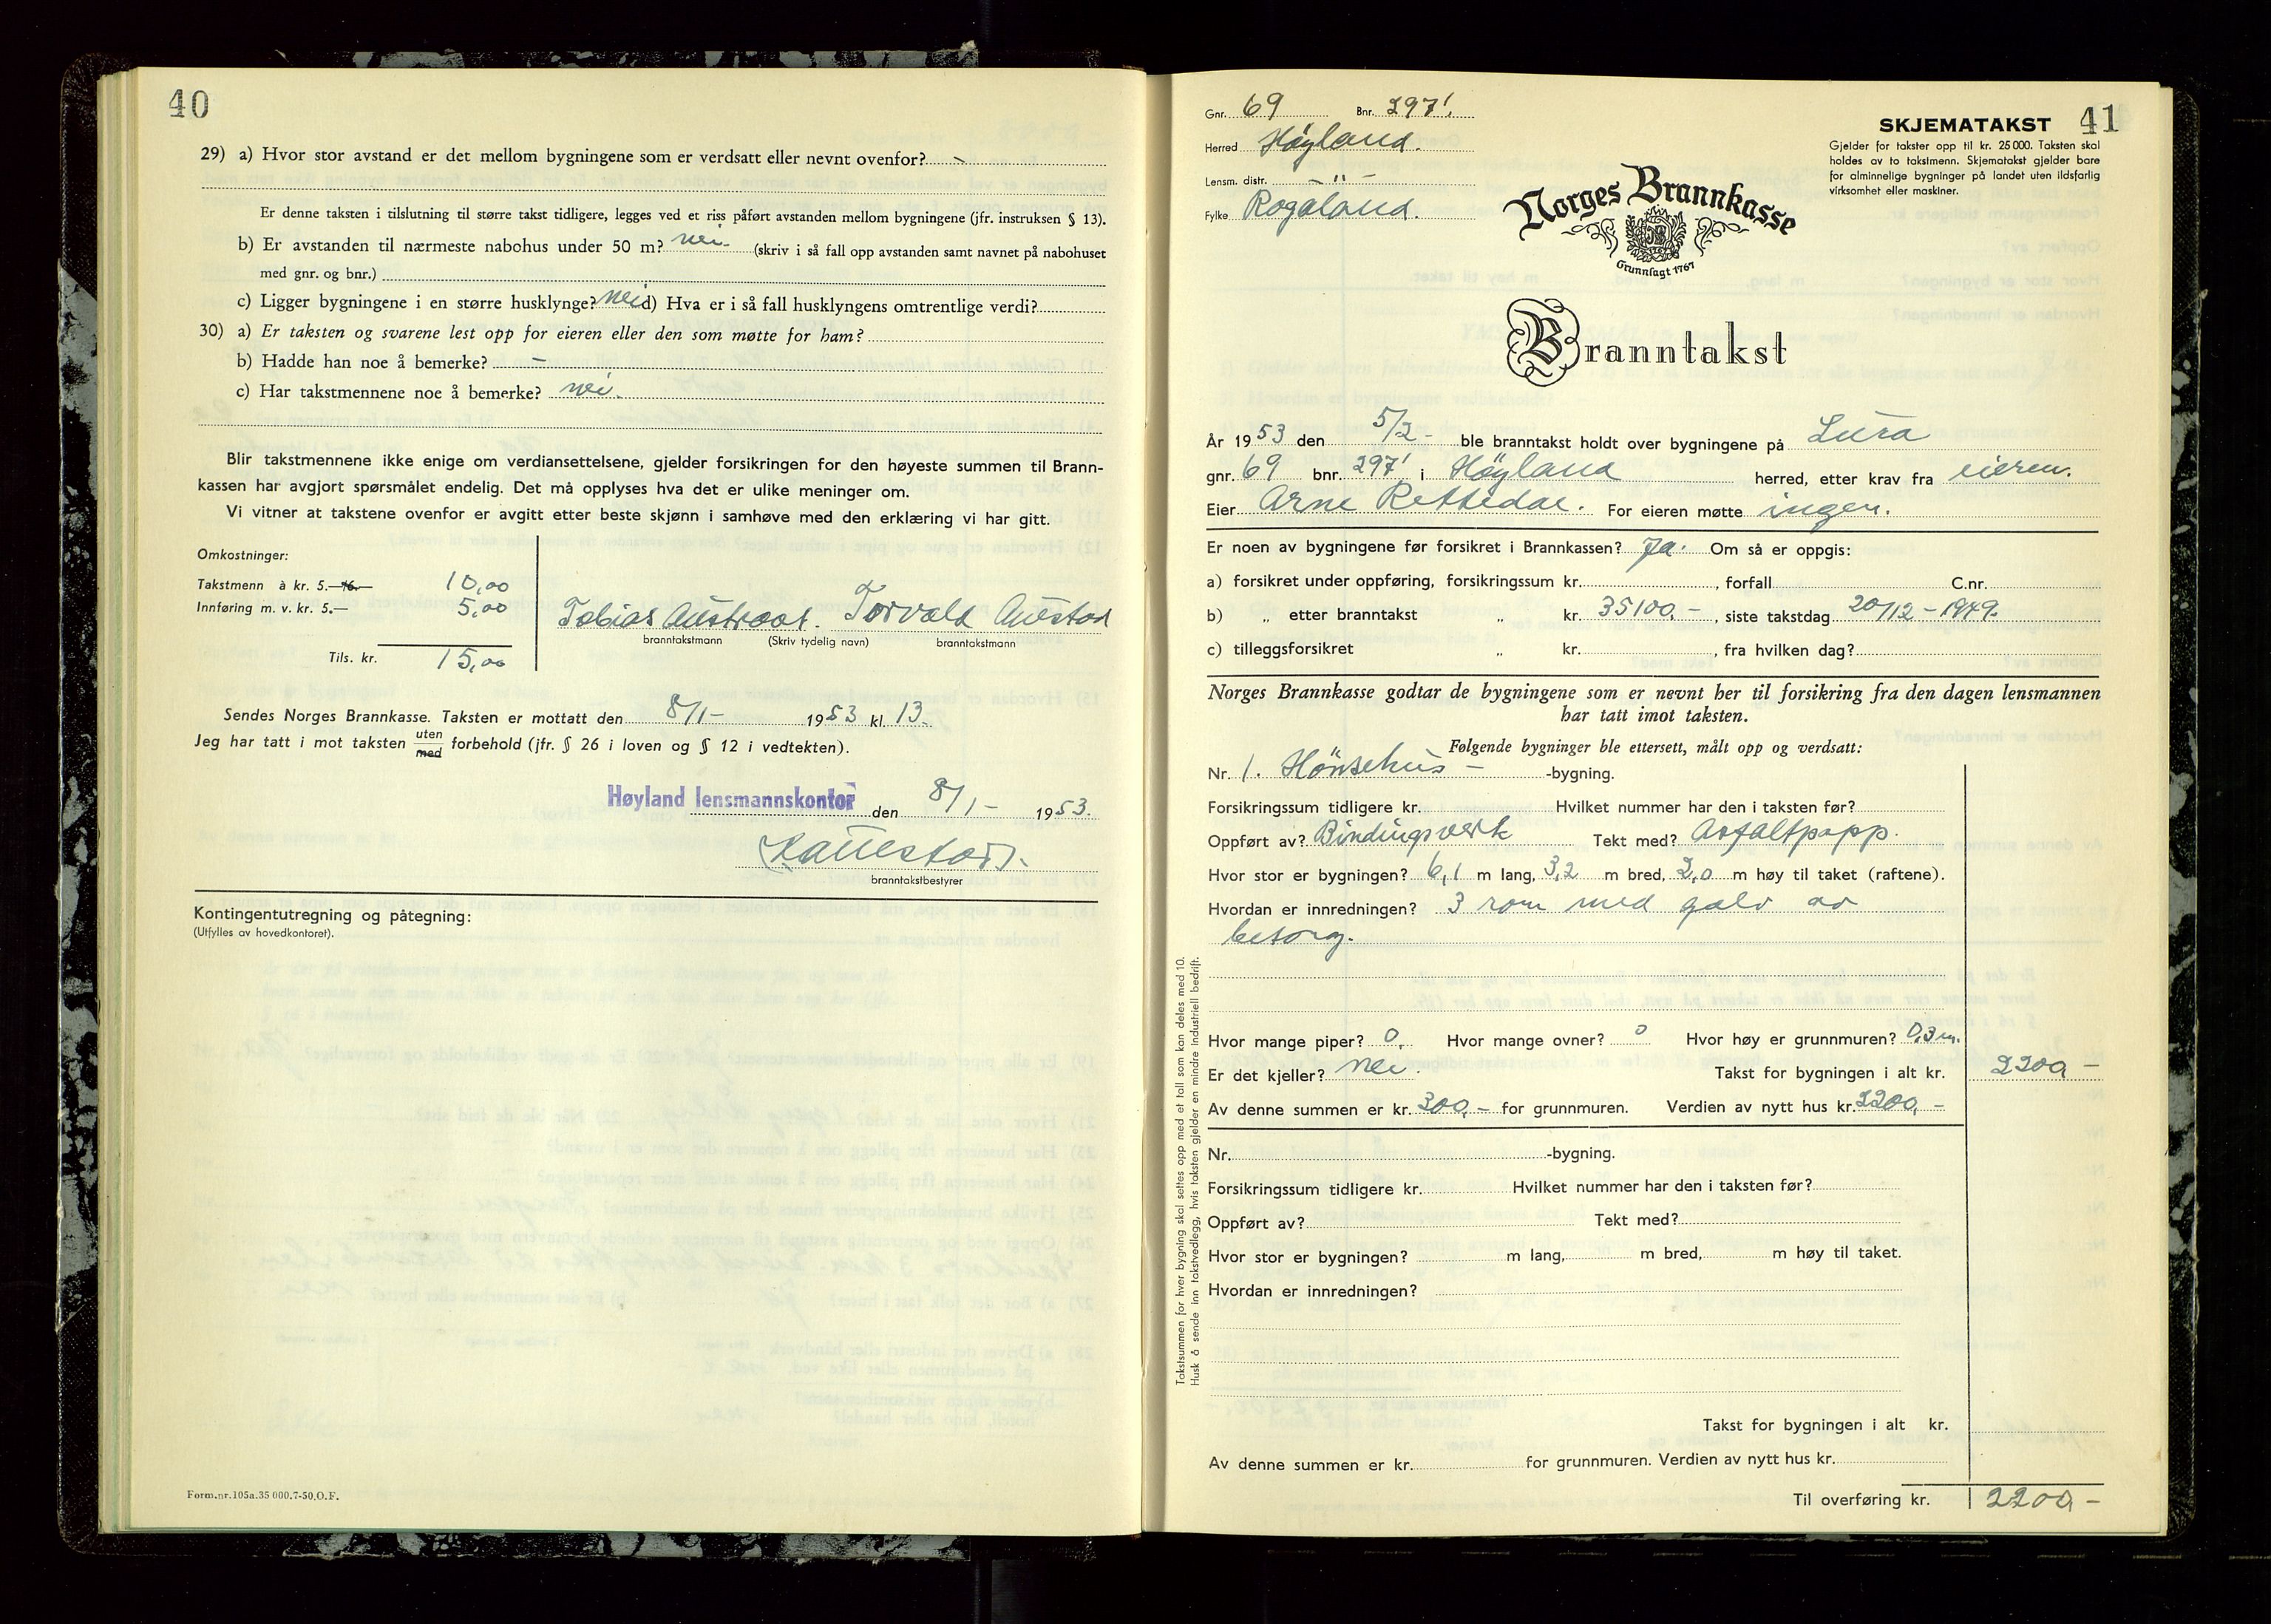 40
29) a) Hvor stor avstand er det mellom bygningene som er verdsatt eller nevnt ovenfor? -
Er denne taksten i tilslutning til større takst tidligere, legges ved et riss påført avstanden mellom bygningene (jfr. instruksen § 13).
b) Er avstanden til nærmeste nabohus under 50 m? nei- (skriv i så fall opp avstanden samt navnet på nabohuset
med gnr. og bnr.)
c) Ligger bygningene i en større husklynge? nei d) Hva er i så fall husklyngens omtrentlige verdi?
30) a) Er taksten og svarene lest opp for eieren eller den som møtte for ham?
b) Hadde han noe å bemerke? -
c) Har takstmennene noe å bemerke? nei.
Blir takstmennene ikke enige om verdiansettelsene, gjelder forsikringen for den høyeste summen til Brann-
kassen har avgjort spørsmålet endelig. Det må opplyses hva det er ulike meninger om.
Vi vitner at takstene ovenfor er avgitt etter beste skjønn i samhøve med den erklæring vi har gitt.
Omkostninger:
Takstmenn à kr. 5.— 10,00
Innføring m. v. kr. 5.— 5,00
Tils. kr. 15,00
Tobias Austraat. Torvald Auestad
branntakstmann (Skriv tydelig navn) branntakstmann
Sendes Norges Brannkasse. Taksten er mottatt den 8/1- 1953 kl. 13.
Jeg har tatt i mot taksten uten med forbehold (jfr. § 26 i loven og § 12 i vedtekten).
Høyland lensmannskontor den 8/1- 1953.
branntakstbestyrer
Kontingentutregning og påtegning:
(Utfylles av hovedkontoret).
Form.nr.105a.35 000.7-50.O.F.
41
Gnr. 69 Bnr. 297'.
Herred Høyland.
Lensm. distr. - " -
Fylke Rogaland.
SKJEMATAKST
Gjelder for takster opp til kr. 25 000. Taksten skal
holdes av to takstmenn. Skjematakst gjelder bare
for alminnelige bygninger på landet uten ildsfarlig
virksomhet eller maskiner.
Norges Brannkasse
Grunnlagt 1767
Branntakst
År 1953 den 5/2- ble branntakst holdt over bygningene på Lura
gnr. 69 bnr. 297' i Høyland herred, etter krav fra eieren.
Eier Arne Rettedal. For eieren møtte ingen.
Er noen av bygningene før forsikret i Brannkassen? Ja. Om så er oppgis:
a) forsikret under oppføring, forsikringssum kr. , forfall C.nr.
b) „ etter branntakst „ kr. 35100,- , siste takstdag 20/12-1949.
c) tilleggsforsikret „ kr. , fra hvilken dag?
Norges Brannkasse godtar de bygningene som er nevnt her til forsikring fra den dagen lensmannen
har tatt imot taksten.
Følgende bygninger ble ettersett, målt opp og verdsatt:
Nr. 1. Hönsehus - -bygning.
Forsikringssum tidligere kr. Hvilket nummer har den i taksten før?
Oppført av? Bindingsverk Tekt med? Asfaltpapp.
Hvor stor er bygningen? 6,1 m lang, 3,2 m bred, 2,0 m høy til taket (raftene).
Hvordan er innredningen? 3 rom med golv av
betong.
Hvor mange piper? 0. Hvor mange ovner? 0 Hvor høy er grunnmuren? 0,3 m.
Er det kjeller? nei. Takst for bygningen i alt kr. 2200,-
Av denne summen er kr. 300,- for grunnmuren. Verdien av nytt hus kr. 2200,-
Nr. -bygning.
Forsikringssum tidligere kr. Hvilket nummer har den i taksten før?
Oppført av? Tekt med?
Hvor stor er bygningen? m lang, m bred, m høy til taket.
Hvordan er innredningen?
Takst for bygningen i alt kr.
Av denne summen er kr. for grunnmuren. Verdien av nytt hus kr.
Til overføring kr. 2200,-
Takstsummen for hver bygning skal settes opp med et tall som kan deles med 10.
Husk å sende inn takstvedlegg, hvis taksten gjelder en mindre industriell bedrift.